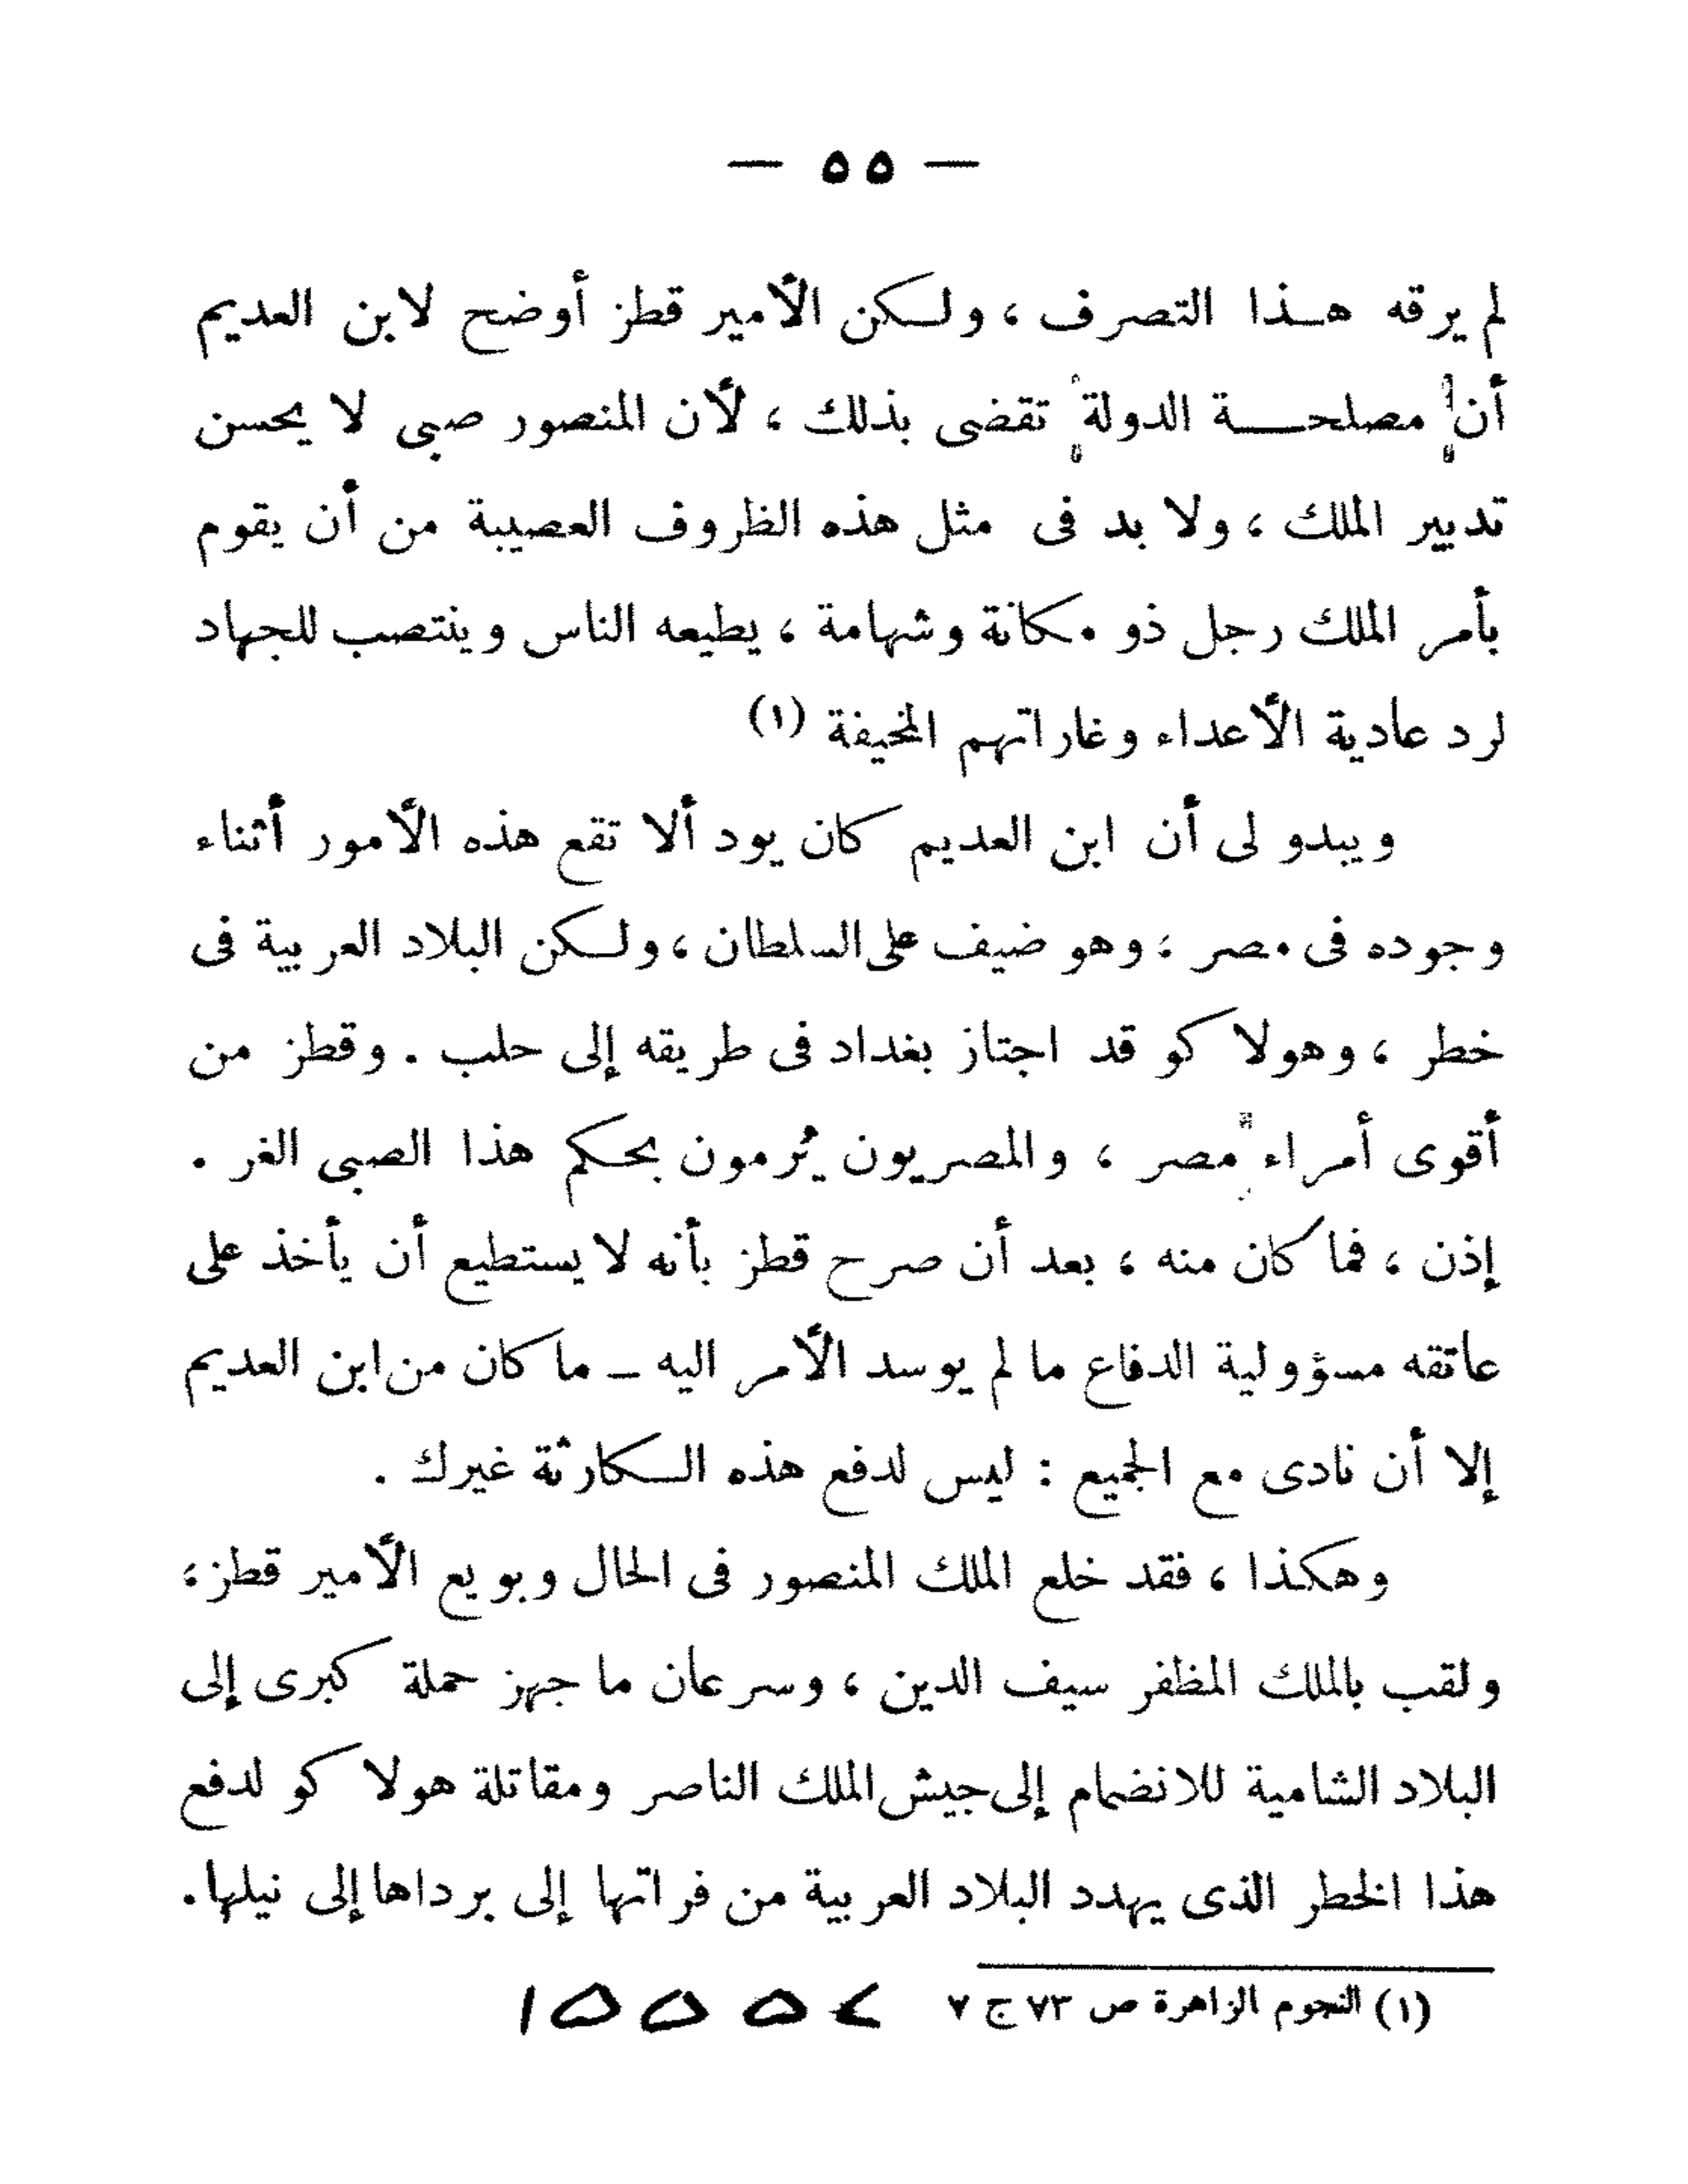 — ٥٥ —
لم يرقه هذا التصرف ، ولكن الأمير قطز أوضح لابن العديم
أن مصلحة الدولة تقضى بذلك ، لأن المنصور صبى لا يحسن
تدبير الملك ، ولا بد فى مثل هذه الظروف العصيبة من أن يقوم
بأمر الملك رجل ذو مكانة وشهامة ، يطيعه الناس وينتصب للجهاد
لرد عادية الأعداء وغاراتهم المخيفة (١)
ويبدو لى أن ابن العديم كان يود ألا تقع هذه الأمور أثناء
وجوده فى مصر ؛ وهو ضيف على السلطان ، ولكن البلاد العربية فى
خطر ، وهولا كو قد اجتاز بغداد فى طريقه إلى حلب . وقطز من
أقوى أمراء مصر ، والمصريون يُرمون بحكم هذا الصبى الغر .
إذن ، فما كان منه ، بعد أن صرح قطز بأنه لا يستطيع أن يأخذ على
عاتقه مسؤولية الدفاع ما لم يوسد الأمر اليه – ما كان من ابن العديم
إلا أن نادى مع الجميع : ليس لدفع هذه الكارثة غيرك .
وهكذا ، فقد خلع الملك المنصور فى الحال وبويع الأمير قطز ؛
ولقب بالملك المظفر سيف الدين ، وسرعان ما جهز حملة كبرى إلى
البلاد الشامية للانضمام إلى جيش الملك الناصر ومقاتلة هولا كو لدفع
هذا الخطر الذى يهدد البلاد العربية من فراتها إلى برداها إلى نيلها .
(١) النجوم الزاهرة ص ٧٣ ج ٧